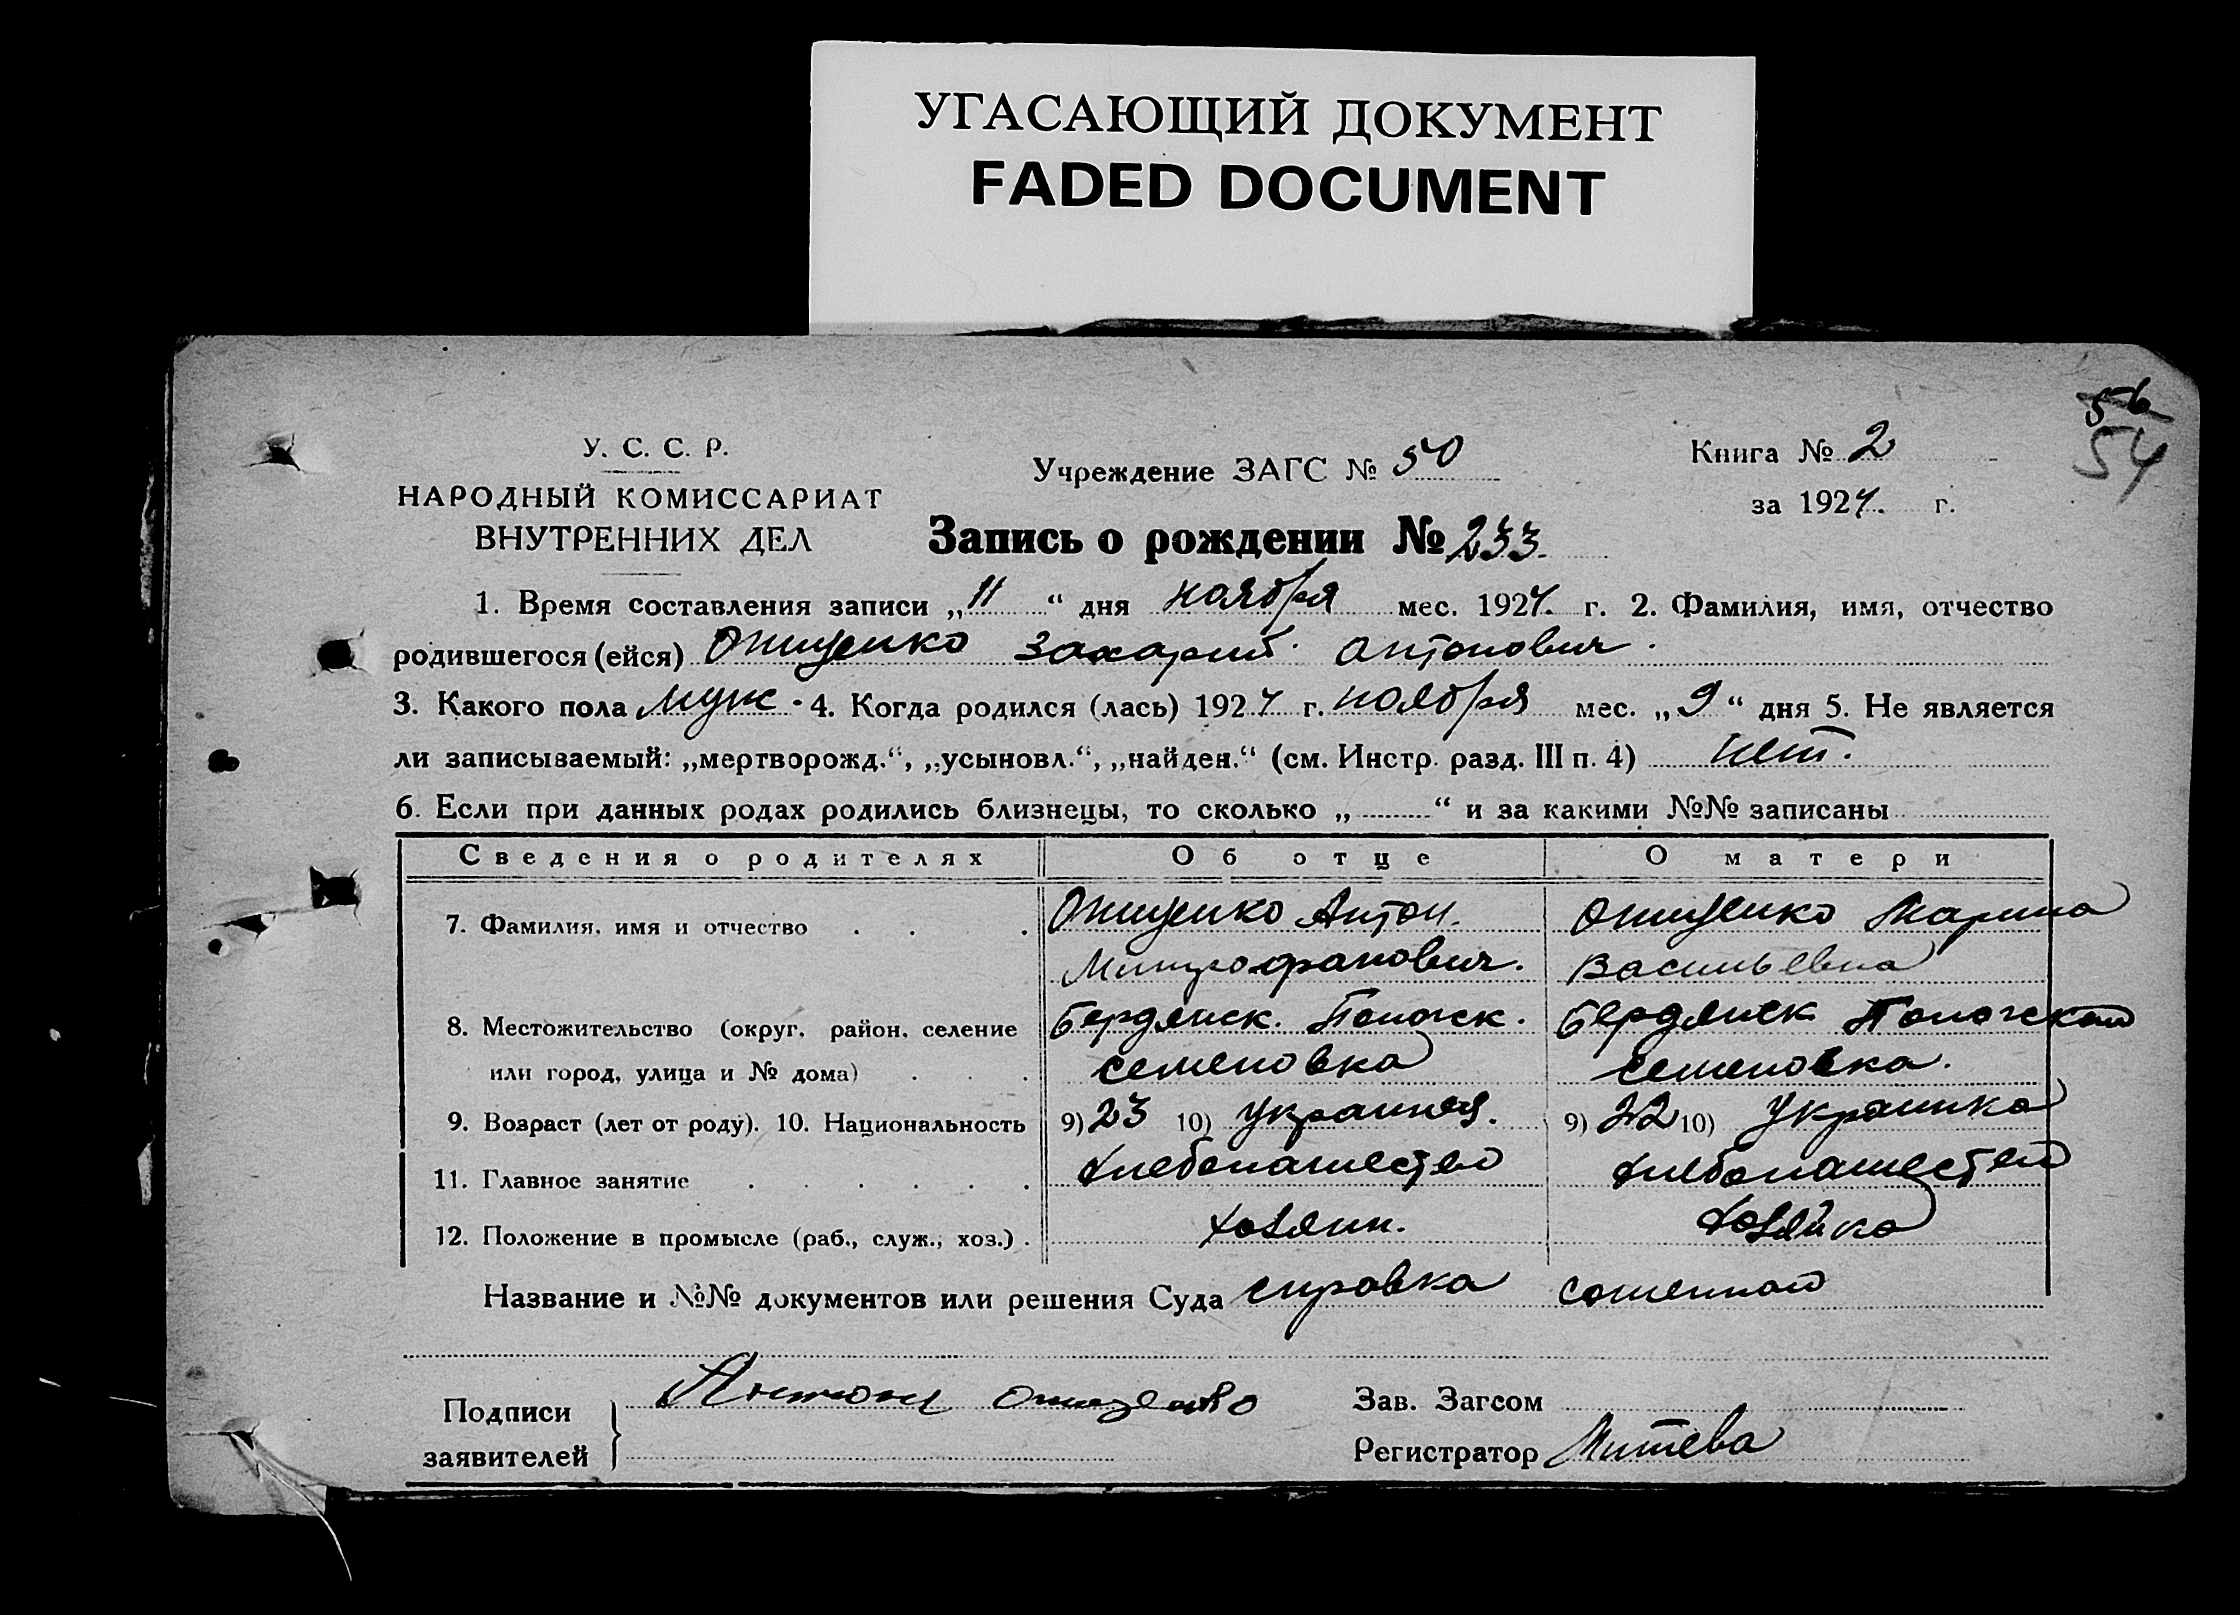 УГАСАЮЩИЙ ДОКУМЕНТ
FADED DOCUMENT
56
54
У. С. С. Р.
НАРОДНЫЙ КОМИССАРИАТ
ВНУТРЕННИХ ДЕЛ
Учреждение ЗАГС № 50
Книга № 2
за 1924 г.
Запись о рождении № 233
1. Время составления записи „11“ дня ноября мес. 1924. г. 2. Фамилия, имя, отчество
родившегося (ейся) Онищенко Захарий Антонович.
3. Какого пола муж. 4. Когда родился (лась) 1924 г. ноября мес. „9“ дня 5. Не является
ли записываемый: „мертворожд.“, „усыновл.“, „найден.“ (см. Инстр. разд. III п. 4) нет.
6. Если при данных родах родились близнецы, то сколько „ “ и за какими №№ записаны
Сведения о родителях Об отце О матери
7. Фамилия, имя и отчество Онищенко Антон. Онищенко Марина
Митрофанович. Васильевна
8. Местожительство (округ, район, селение Бердянск. Пологск. Бердянск Пологский
или город, улица и № дома) Семеновка Семеновка.
9. Возраст (лет от роду). 10. Национальность 9) 23 10) Украинец. 9) 22 10) Украинка
11. Главное занятие хлебопашество хлебопашество
12. Положение в промысле (раб., служ., хоз.) хозяин. хозяйка
Название и №№ документов или решения Суда справка
Подписи заявителей Антон Онищенко
Зав. Загсом
Регистратор Митева